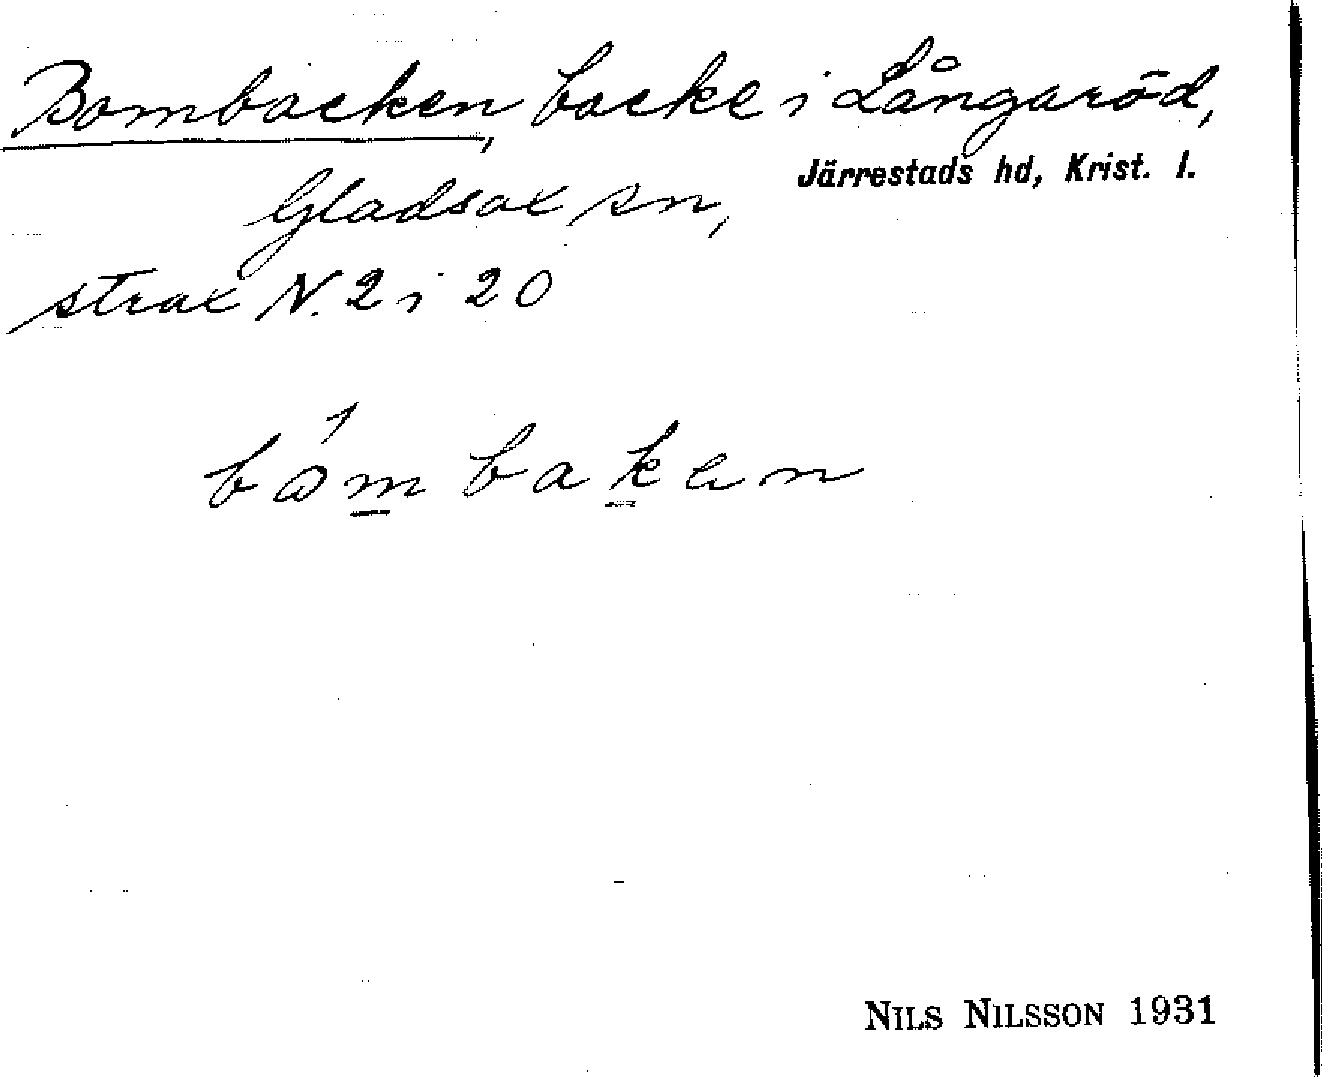 Bombacken, backe i Långaröd,
Järrestads hd, Krist. l.
Gladsax sn,
strax N. 2 i 20
bòmbakan
NILS NILSSON 1931